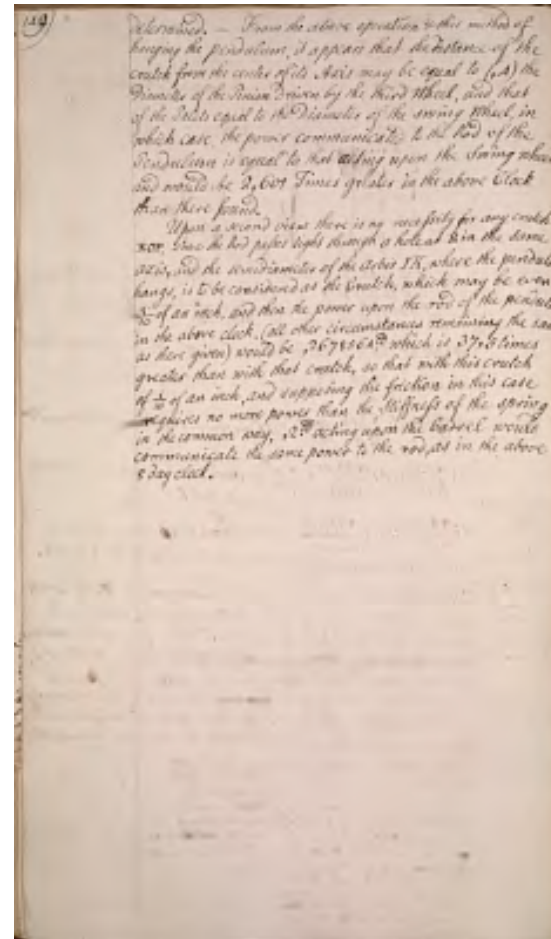 determined. — From the above operation & this method of
hanging the pendulum, it appears that the Distance of the
crutch from the center of its Axis may be equal to (.4) the
Diameter of the Pinion Driven by the third Wheel, and that
of the Pelets equal to the Diameter of the swing Wheel, in
which case, the power communicated to the Rod of the
Pendulum is equal to that acting upon the Swing wheel
and would be 2,601 Times greater in the above Clock
than there found.
Upon a second view there is no necessity for any crutch
since the Rod passes tight through a hole at in the same
axis, and the semidiameter of the Arbor IK, where the pendulu
hangs, is to be considered as the Crutch, which may be even
of an inch, and then the power upon the rod of the pendul
in the above clock, (all other circumstances remaining the sam
as here given) would be which is 37,5 times
greater than with that crutch, so that with this crutch
of of an inch, and supposing the friction in this case
requires no more power than the Stiffness of the spring
in the common way, acting upon the barrel would
communicate the same power to the rod, as in the above
8 day clock.